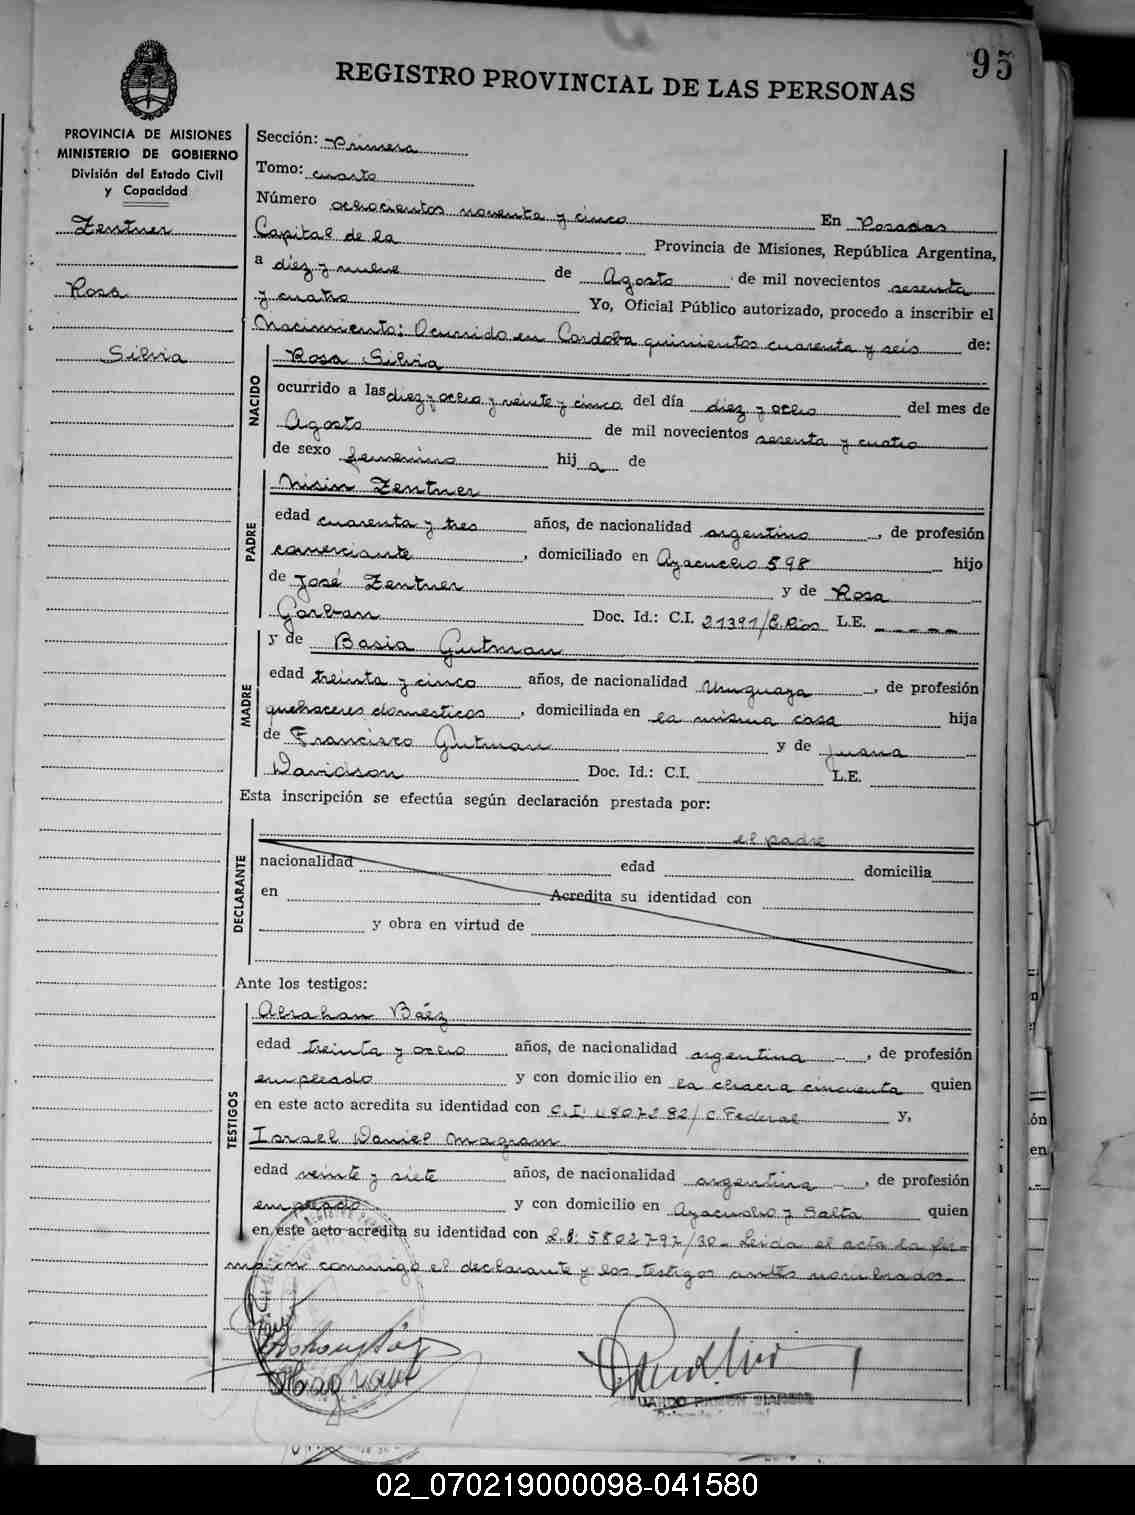 95
REGISTRO PROVINCIAL DE LAS PERSONAS
PROVINCIA DE MISIONES
MINISTERIO DE GOBIERNO
División del Estado Civil
y Capacidad
Zentner
Rosa
Silvia
Sección: Primera
Tomo: cuarto
Número ochocientos noventa y cinco En Posadas
Capital de la Provincia de Misiones, República Argentina,
a diez y nueve de Agosto de mil novecientos sesenta
y cuatro Yo, Oficial Público autorizado, procedo a inscribir el
Nacimiento: Ocurrido en Cordoba quinientos cuarenta y seis de:
NACIDO
Rosa Silvia
ocurrido a las diez y ocho y veinte y cinco del día diez y ocho del mes de
Agosto de mil novecientos sesenta y cuatro
de sexo femenino hij a de
PADRE
Nisin Zentner
edad cuarenta y tres años, de nacionalidad argentino, de profesión
comerciante, domiciliado en Ayacucho 598 hijo
de José Zentner y de Rosa
Garban Doc. Id.: C.I. 21391/E. Rios L.E. -----
MADRE
y de Basia Gutman
edad treinta y cinco años, de nacionalidad Uruguaya, de profesión
quehaceres domesticos, domiciliada en la misma casa hija
de Francisco Gutman y de Juana
Davidson Doc. Id.: C.I. L.E.
Esta inscripción se efectúa según declaración prestada por:
DECLARANTE
el padre
nacionalidad edad domicilia
en Acredita su identidad con
y obra en virtud de
Ante los testigos:
TESTIGOS
Abrahan Báez
edad treinta y ocho años, de nacionalidad argentina, de profesión
empleado y con domicilio en la chacra cincuenta quien
en este acto acredita su identidad con C.I. 4807282/C. Federal y,
Israel Daniel Magram
edad veinte y siete años, de nacionalidad argentina, de profesión
empleado y con domicilio en Ayacucho y Salta quien
en este acto acredita su identidad con 5802797/30- Leida el acta la fir-
man conmigo el declarante y los testigos antes nombrados-
02_070219000098-041580